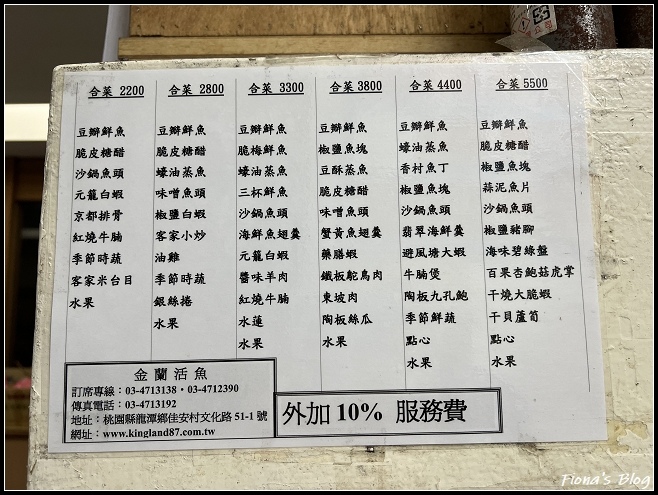 合菜 2200
豆瓣鮮魚
脆皮糖醋
沙鍋魚頭
元籠白蝦
京都排骨
紅燒牛腩
季節時蔬
客家米台目
水果
合菜 2800
豆瓣鮮魚
脆皮糖醋
蠔油蒸魚
味噌魚頭
椒鹽白蝦
客家小炒
油雞
季節時蔬
銀絲捲
水果
合菜 3300
豆瓣鮮魚
脆梅鮮魚
蠔油蒸魚
三杯鮮魚
沙鍋魚頭
海鮮魚翅羹
元籠白蝦
醬味羊肉
紅燒牛腩
水蓮
水果
合菜 3800
豆瓣鮮魚
椒鹽魚塊
豆酥蒸魚
脆皮糖醋
味噌魚頭
蟹黃魚翅羹
藥膳蝦
鐵板鴕鳥肉
東坡肉
陶板絲瓜
水果
合菜 4400
豆瓣鮮魚
蠔油蒸魚
香村魚丁
椒鹽魚塊
沙鍋魚頭
翡翠海鮮羹
避風塘大蝦
牛腩煲
陶板九孔鮑
季節鮮蔬
點心
水果
合菜 5500
豆瓣鮮魚
脆皮糖醋
椒鹽魚塊
蒜泥魚片
沙鍋魚頭
椒鹽豬腳
海味碧綠盤
百果杏鮑菇虎掌
干燒大脆蝦
干貝蘆筍
點心
水果
金蘭活魚
訂席專線：03-4713138・03-4712390
傳真電話：03-4713192
地址：桃園縣龍潭鄉佳安村文化路 51-1 號
網址：www.kingland87.com.tw
外加 10% 服務費
Fiona's Blog